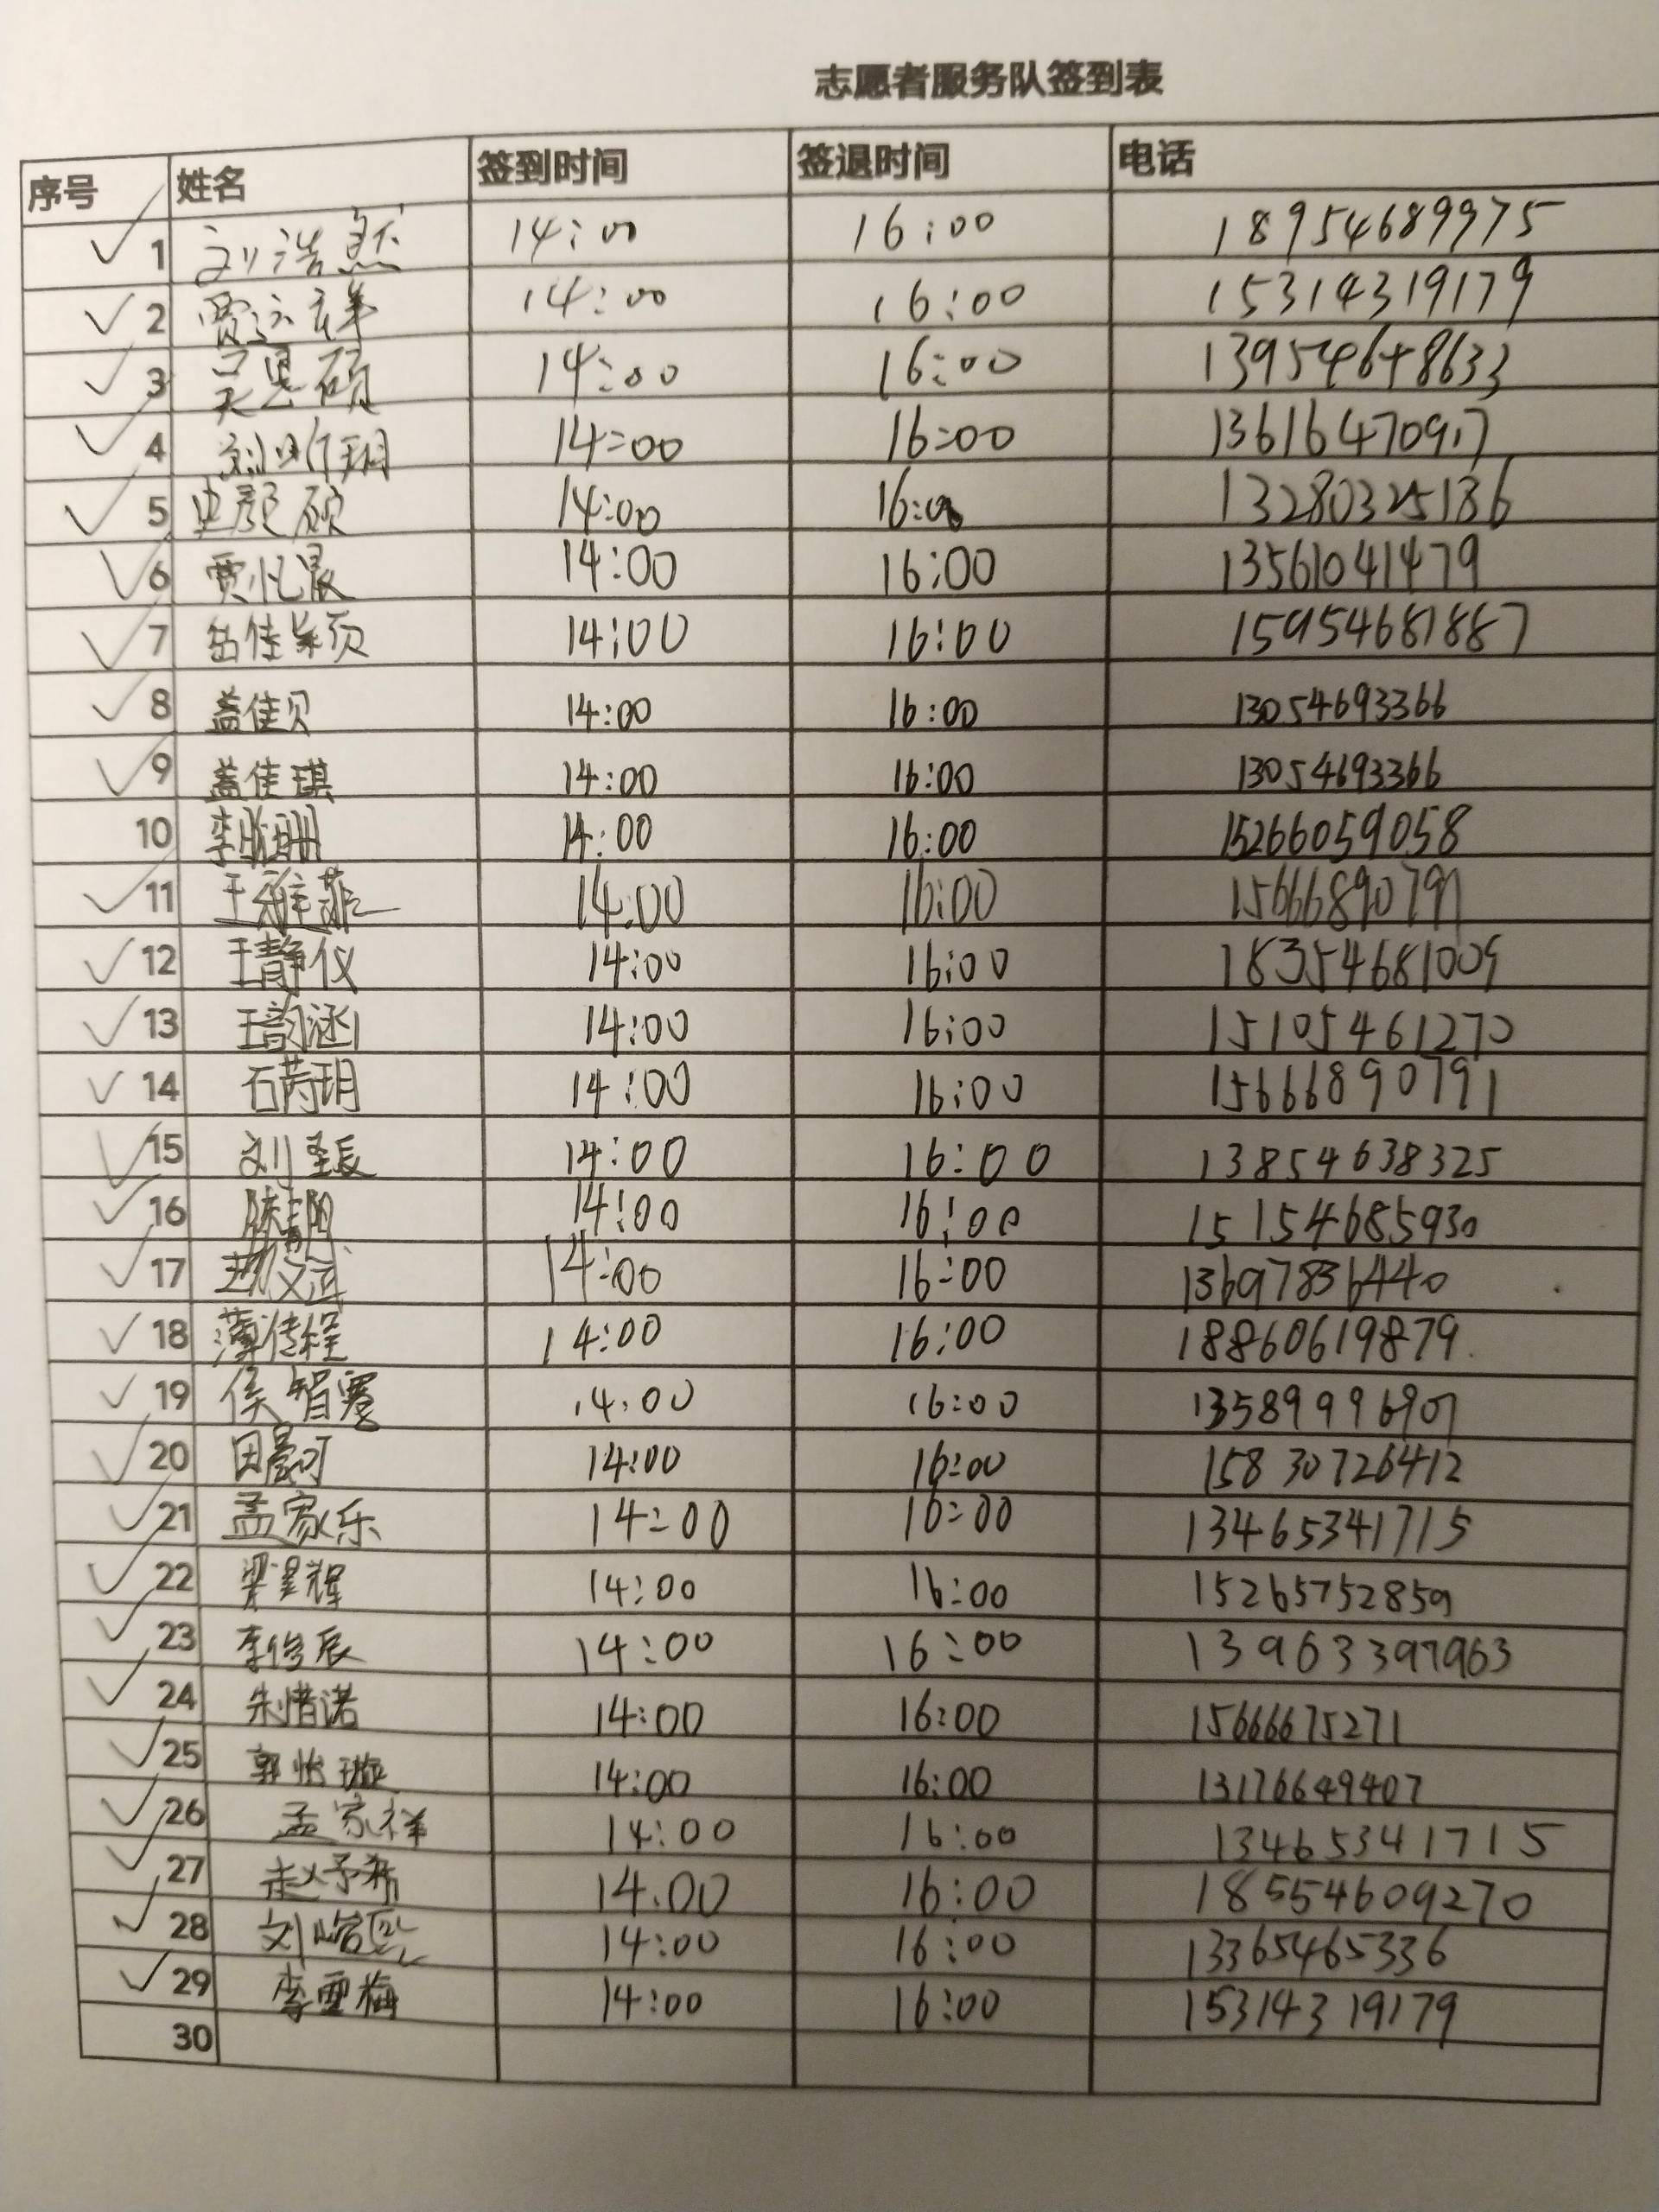 志愿者服务队签到表
序号 姓名 签到时间 签退时间 电话
1 刘浩然 14:00 16:00 18954689975
2 贾 祥 14:00 16:00 15314319179
3 吴恩硕 14:00 16:00 13954648633
4 刘昕玥 14:00 16:00 13616470917
5 史颜硕 14:00 16:00 13280325186
6 贾忆晨 14:00 16:00 13561041479
7 岳佳颖 14:00 16:00 15954681887
8 盖佳贝 14:00 16:00 13054693366
9 盖佳琪 14:00 16:00 13054693366
10 李 珊 14:00 16:00 15266059058
11 王雅菲 14:00 16:00 15666890791
12 王静仪 14:00 16:00 18354681009
13 王韵涵 14:00 16:00 15105461270
14 石芮玥 14:00 16:00 15666890791
15 刘 辰 14:00 16:00 13854638325
16 14:00 16:00 15154685930
17 14:00 16:00 13697836440
18 薄传程 14:00 16:00 18860619879
19 侯智骞 14:00 16:00 13589996907
20 田曼可 14:00 16:00 15830726412
21 孟家乐 14:00 16:00 13465341715
22 梁星辉 14:00 16:00 15265752859
23 李俊辰 14:00 16:00 13963397963
24 朱惜诺 14:00 16:00 15666675271
25 郭怡璇 14:00 16:00 13176649407
26 孟家祥 14:00 16:00 13465341715
27 赵予希 14:00 16:00 18554609270
28 刘峪熙 14:00 16:00 13365465336
29 李雪梅 14:00 16:00 15314319179
30